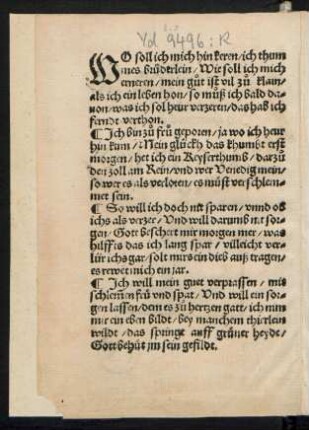 Yd 9496: R
WO soll ich mich hin keren/ich thum
mes brüderlein/Wie soll ich mich
erneren/mein gůt ist vil zů klain/
als ich ein leben hon/so můß ich bald dar
uon/was ich sol heur verzeren/das hab ich
ferndt verthon.
¶ Ich bin zů frů geporen/ja wo ich heur
hin kum/Mein glückh das khumbt erst
morgen/het ich ein Keyserthumb/darzů
den zoll am Rein/und wer Venedig mein/
so wer es als verloren/es můst verschlem-
met sein.
¶ So will ich doch nit sparen/vnnd ob
ichs als verzer/Vnd will darumb nit sor-
gen/Gott beschert mir morgen mer/was
hilffts das ich lang spar/villeicht ver-
lür ichs gar/solt mirs ein dieb auß tragen/
es rewet mich ein jar.
¶ Ich will mein guet verprassen/mit
schlemen frů vnd spat/Vnd will ein sor-
gen lassen/dem es zů hertzen gatt/ich nim
mir ein eben bildt/bey manchem thierlein
wildt/das springt auff grüner heyde/
Gott behüt im sein gefildt.